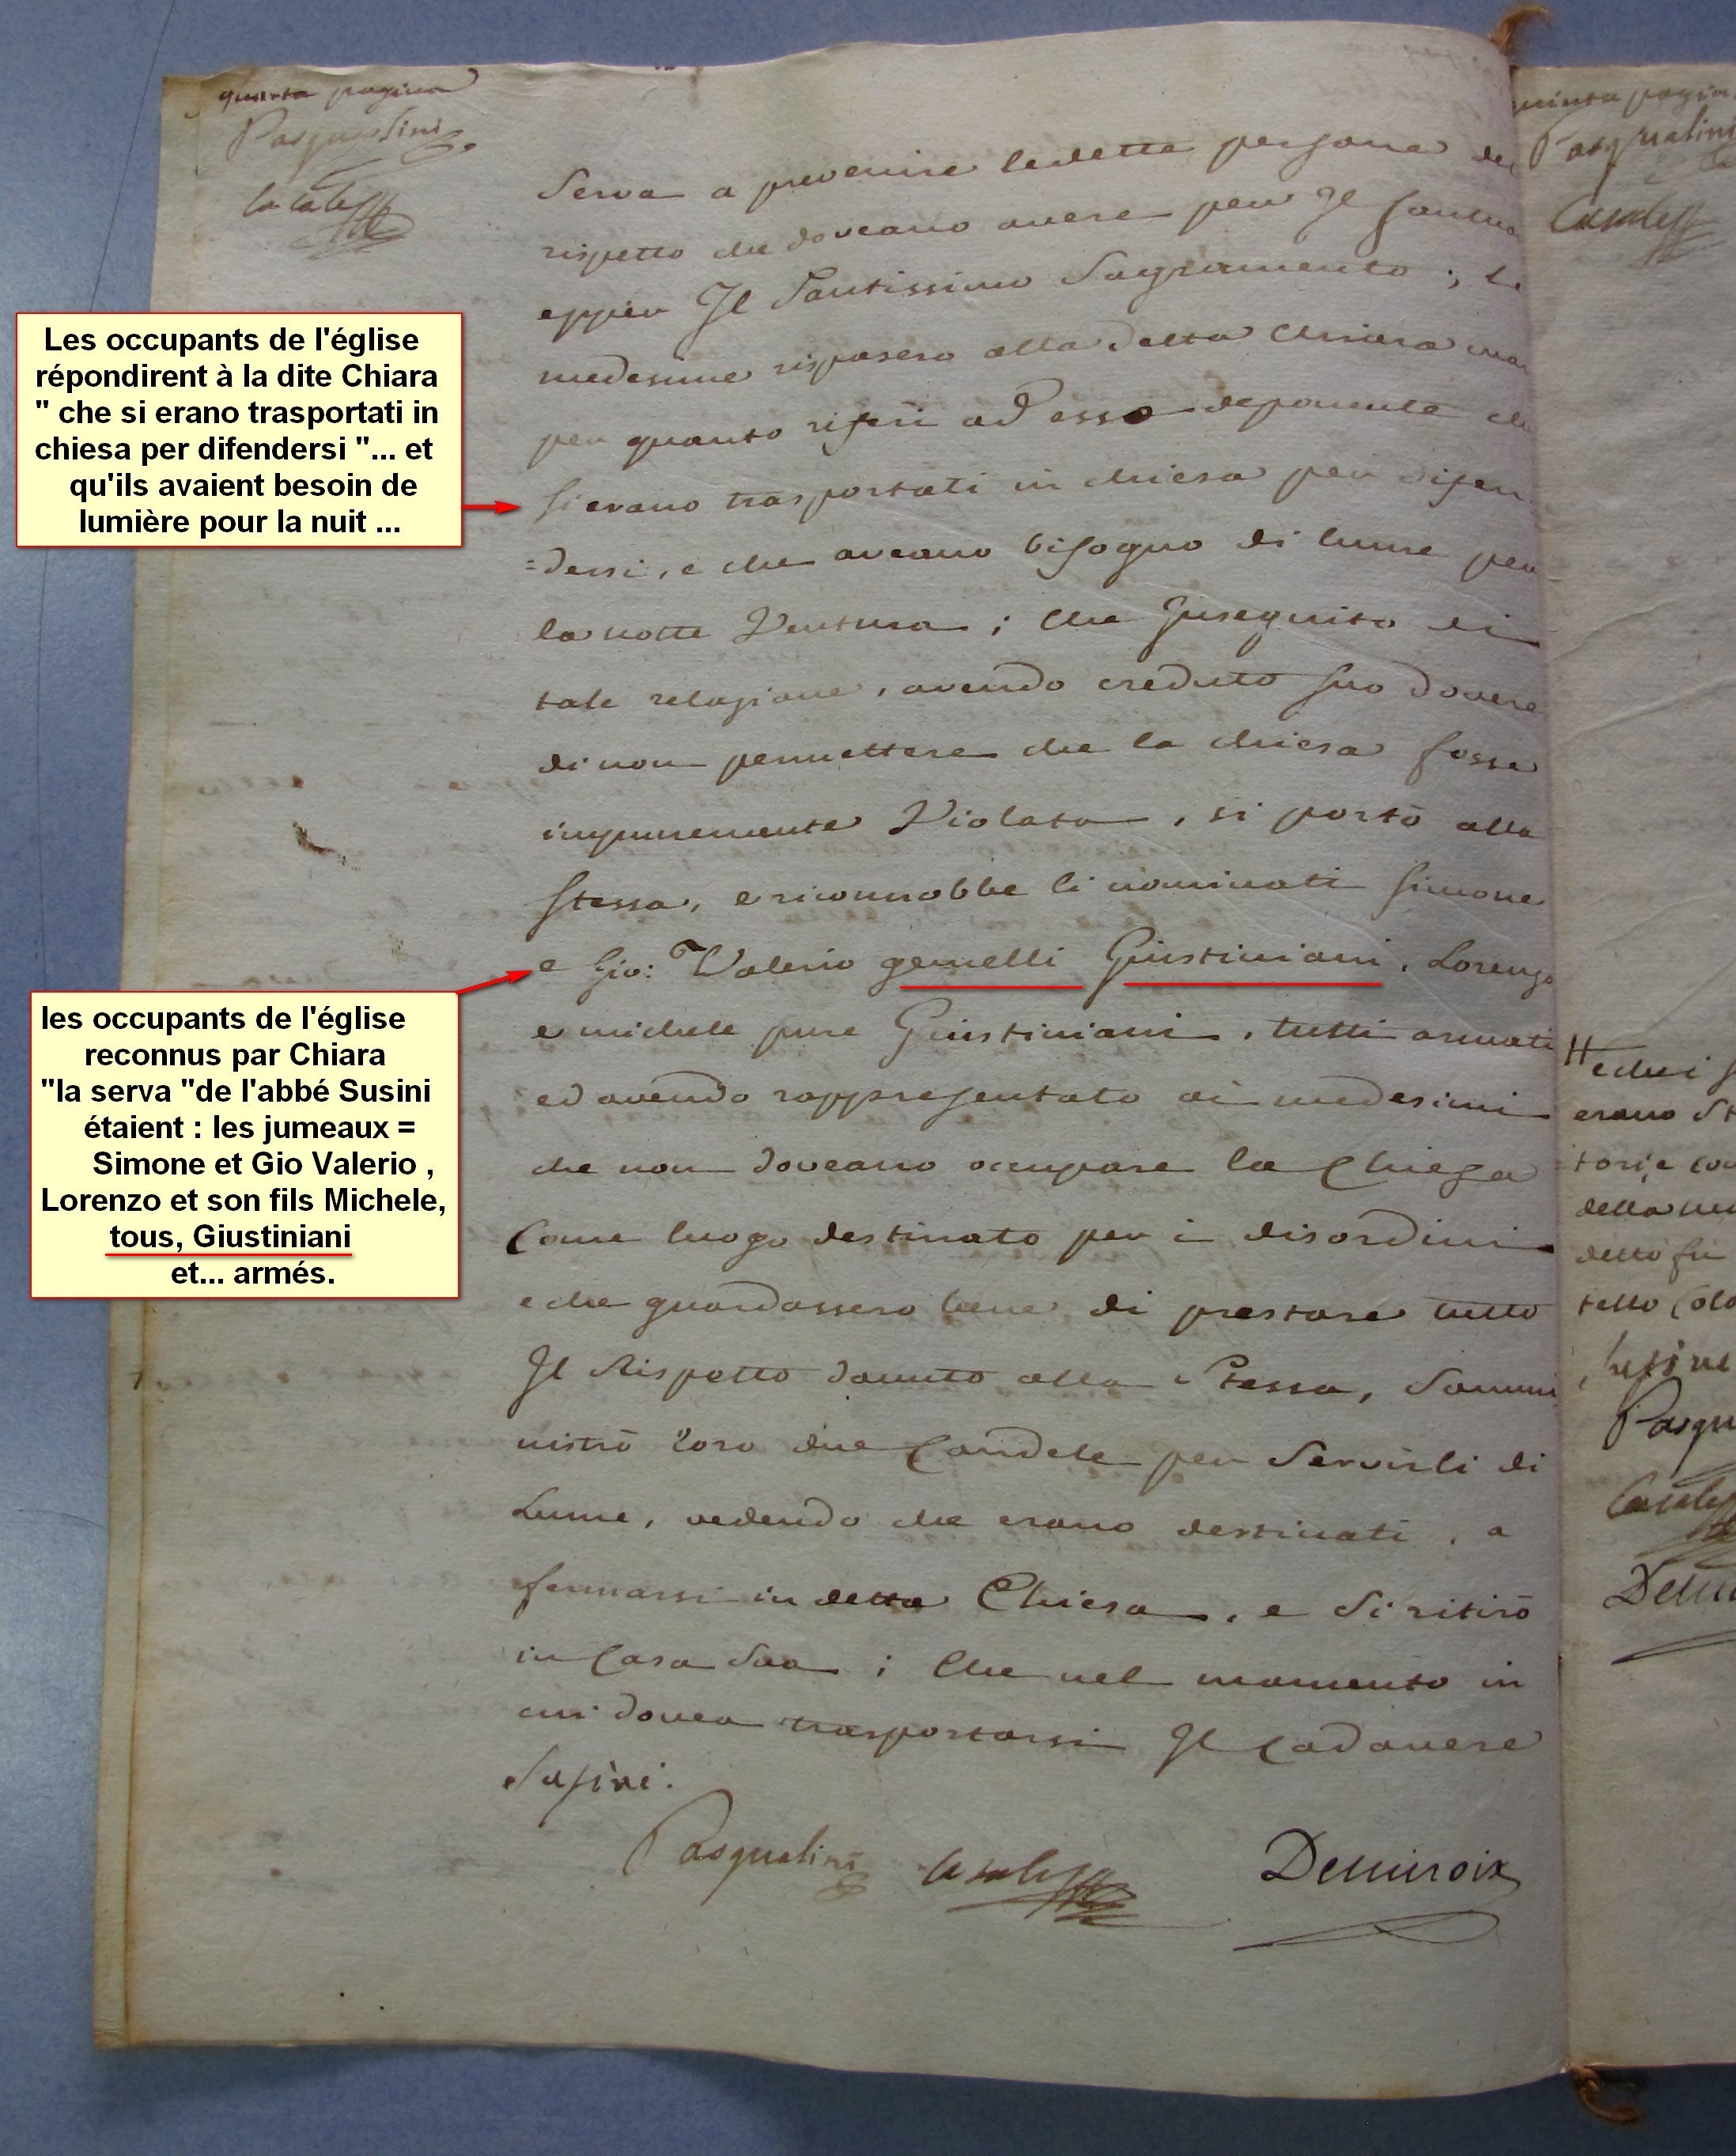 quarta pagina
Pasqualini
Serva a prevenire ledette persone del
rispetto che doveano avere per Il santuo
eppiu Il Santissimo Sagramento ; le
medesime risposero alla detta Chiara
per quanto riferi ad esso deponente che
si erano trasportati in chiesa per difen
=dersi, e che aveano bisogno di lume per
la notte Ventura ; Che Inseguito di
tale relazione, avendo creduto suo dovere
di non permettere che la chiesa fosse
impunemente Violata, si portò alla
stessa, e riconnobbe li nominati Simone
e Gio: Valerio gemelli Giustiniani, Lorenzo
e michele pure Giustiniani, tutti armati
ed avendo rappresentato ai medesimi
che non doveano occupare la Chiesa
Come luogo destinato per i disordini
e che guardassero bene di prestare tutto
Il Rispetto dovuto alla Stessa, Sommi
nistrò loro due Candele per Servirli di
Lume, vedendo che erano destinati, a
fermarsi in detta Chiesa, e Si ritirò
in Casa Sua ; Che nel momento in
cui dovea trasportarsi Il Cadavere
Susini.
Pasqualini Casalta Demiroix
Les occupants de l'église
répondirent à la dite Chiara
" che si erano trasportati in
chiesa per difendersi "... et
qu'ils avaient besoin de
lumière pour la nuit ...
les occupants de l'église
reconnus par Chiara
"la serva "de l'abbé Susini
étaient : les jumeaux =
Simone et Gio Valerio ,
Lorenzo et son fils Michele,
tous, Giustiniani
et... armés.
quinta pagina
Pasqualini
erano
della
tello
Pasqu